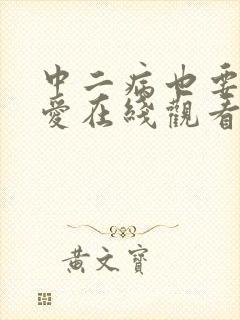 中二病也要
愛在綫觀看
黃文寶